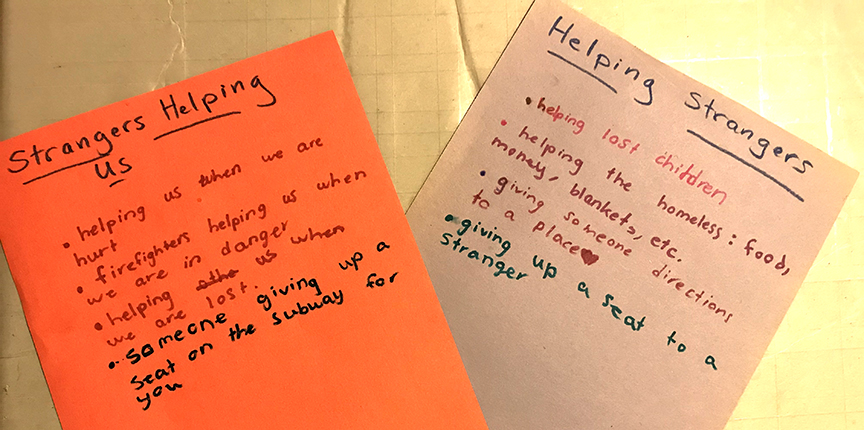 Strangers Helping
Us
• helping us when we are
hurt
• firefighters helping us when
we are in danger
• helping us when
we are lost.
• Someone giving up a
seat on the subway for
you
Helping Strangers
• helping lost children
• helping the homeless: food,
money, blankets, etc.
• giving someone directions
to a place♥
• giving up a seat to a
stranger